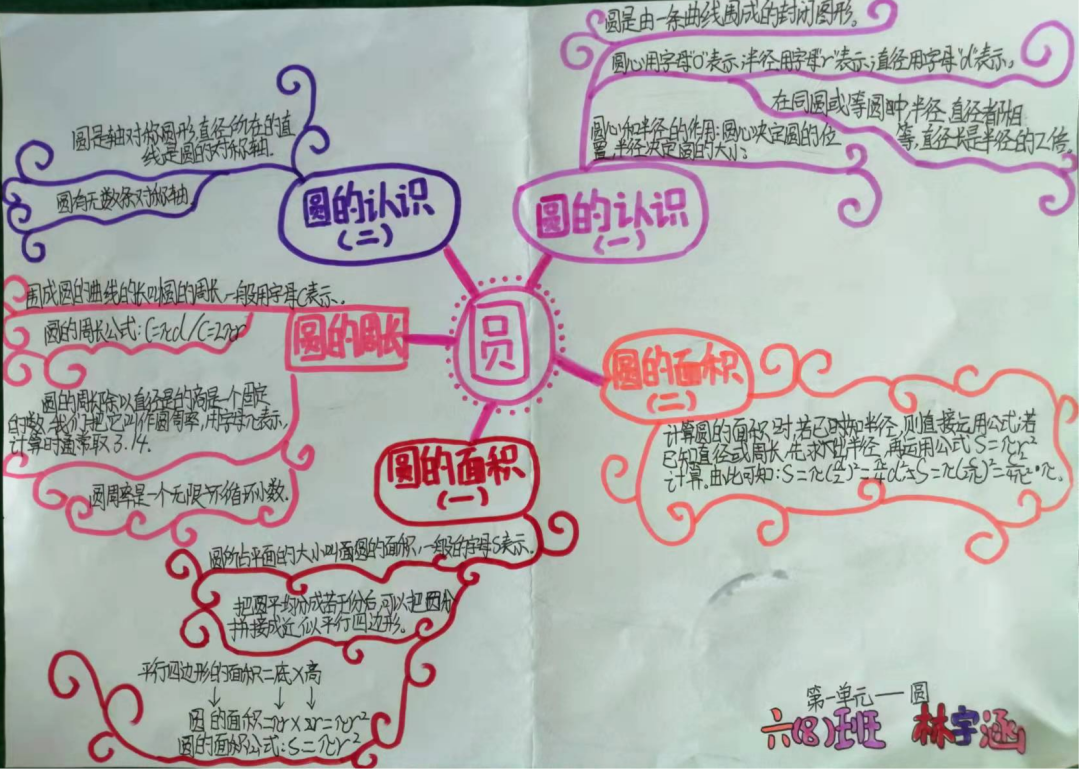 圆是由一条曲线围成的封闭图形。
圆心用字母"O"表示,半径用字母"r"表示,直径用字母"d"表示。
在同圆或等圆中,半径、直径都相
等,直径长是半径的2倍。
圆心和半径的作用:圆心决定圆的位
置,半径决定圆的大小。
圆的认识
(一)
圆是轴对称图形,直径所在的直
线是圆的对称轴.
圆有无数条对称轴
圆的认识
(二)
围成圆的曲线的长叫圆的周长,一般用字母C表示.
圆的周长公式:C=πd/C=2πr
圆的周长
圆的周长除以直径的商是一个固定
的数,我们把它叫作圆周率,用字母π表示,
计算时通常取3.14.
圆周率是一个无限不循环小数.
员
圆的面积
(二)
计算圆的面积时,若已知半径,则直接运用公式;若
已知直径或周长,先求出半径,再运用公式S=πr²
计算.由此可知:
圆的面积
(一)
圆所占平面的大小叫圆的面积,一般的字母S表示.
把圆平均分成若干份后,可以把圆分
拼接成近似平行四边形.
平行四边形的面积=底×高
↓ ↓ ↓
圆的面积=πr×r=πr²
圆的面积公式:S=πr²
第一单元——圆
六(8)班 林宇涵